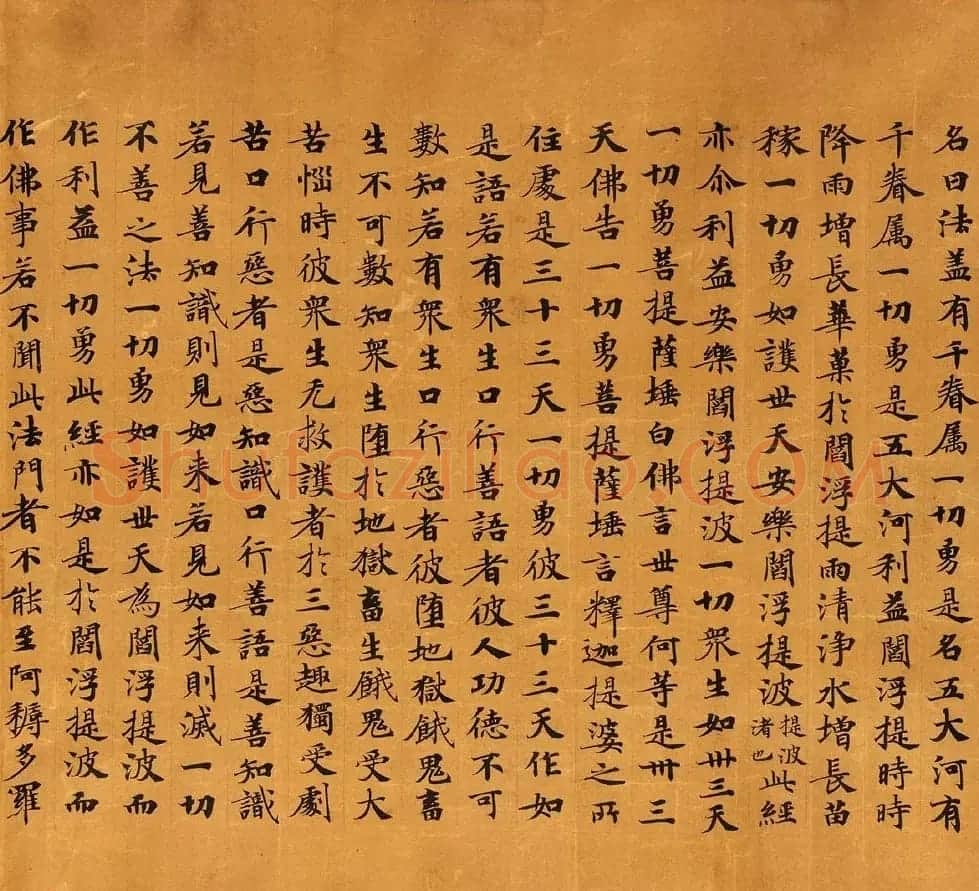 名曰法盖有千眷属一切勇是名五大河有
千眷属一切勇是五大河利益閻浮提時時
降雨增長華菓於閻浮提雨清淨水增長苗
稼一切勇如護世天安樂閻浮提波提波渚也此經
亦尒利益安樂閻浮提波一切眾生如卅三天
一切勇菩提薩埵白佛言世尊何等是卅三
天佛告一切勇菩提薩埵言釋迦提婆之所
住處是三十三天一切勇彼三十三天作如
是語若有眾生口行善語者彼人功德不可
數知若有眾生口行惡者彼堕地獄餓鬼畜
生不可數知眾生堕於地獄畜生餓鬼受大
苦惱時彼眾生无救護者於三惡趣獨受劇
苦口行惡者是惡知識口行善語是善知識
若見善知識則見如来若見如来則滅一切
不善之法一切勇如護世天為閻浮提波而
作利益一切勇此經亦如是於閻浮提波而
作佛事若不聞此法門者不能至阿耨多羅
Shufaziliao.com